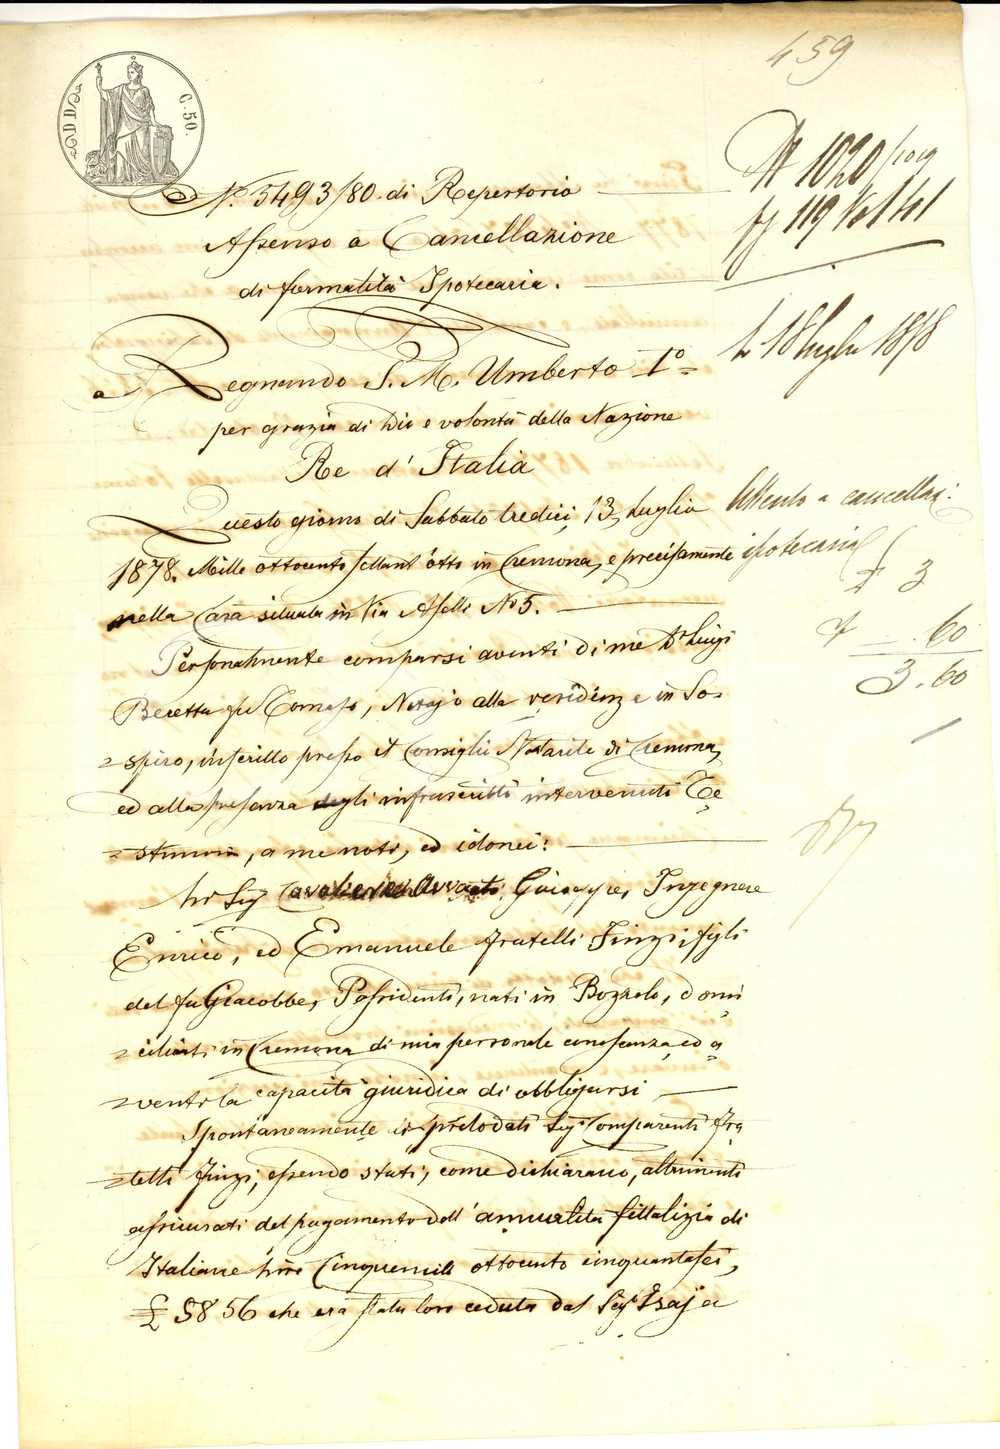 459
C. 50.
N.° 5493/80. di Repertorio
Assenso a Cancellazione
di formalità Ipotecaria.
N 1020/1019
fg 119 Vol 141
Regnando S. M. Umberto I°
per grazia di Dio e volontà della Nazione
Re d'Italia
Li 18 luglio 1878
Questo giorno di Sabbato tredici, 13, Luglio
1878. Mille ottocento settant'otto in Cremona, e precisamente
nella Casa situata in Via Aselli N° 5.
Assenso a cancellaz:
ipotecaria
3
.60
3.60
Personalmente comparsi avanti di me Dr Luigi
Beretta fu Tomaso, Notajo alla residenza in So-
spiro, inscritto presso il Consiglio Notarile di Cremona,
ed alla presenza degli infrascritti intervenuti Te
stimoni, a me noti, ed idonei:
Li Sigri Giuseppe, Ingegnere
Enrico, ed Emanuele fratelli Finzi, figli
del fu Giacobbe, Possidenti, nati in Bozzolo, domi
ciliati in Cremona di mia personale conoscenza, ed a
venti la capacità giuridica di obbligarsi
Spontaneamente i prelodati Sigri Comparenti Fra
telli Finzi, essendo stati, come dichiarano, altrimenti
assicurati del pagamento dell'annualità fittalizia di
Italiane Lire Cinquemille ottocento cinquantasei,
£ 5856 che era stata loro ceduta dal Sigr Isaja